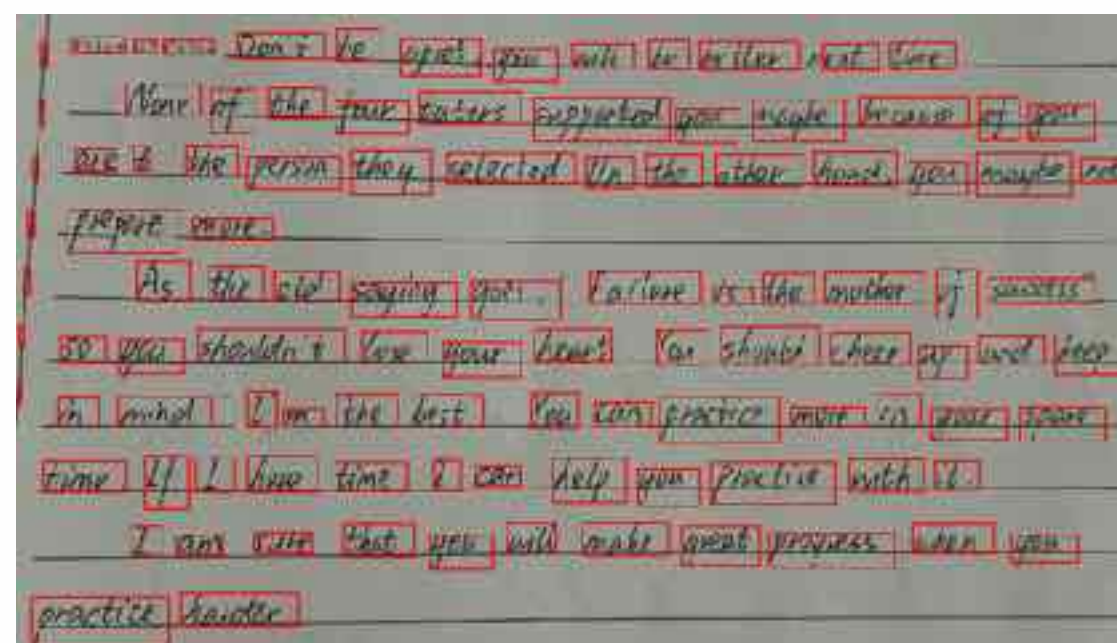 Don't be upset. you will be better next time
None of the four raters supported you maybe because of your
the person they selected On the other hand, you maybe not
prepare more.
As the old saying goes. Failure is the mother of success"
so you shouldn't lose your heart You should cheer up and keep
in mind I am the best. You can practice more in your spare
time If I have time I can help you practice with it.
I am sure that you will make great progress when you
practice harder